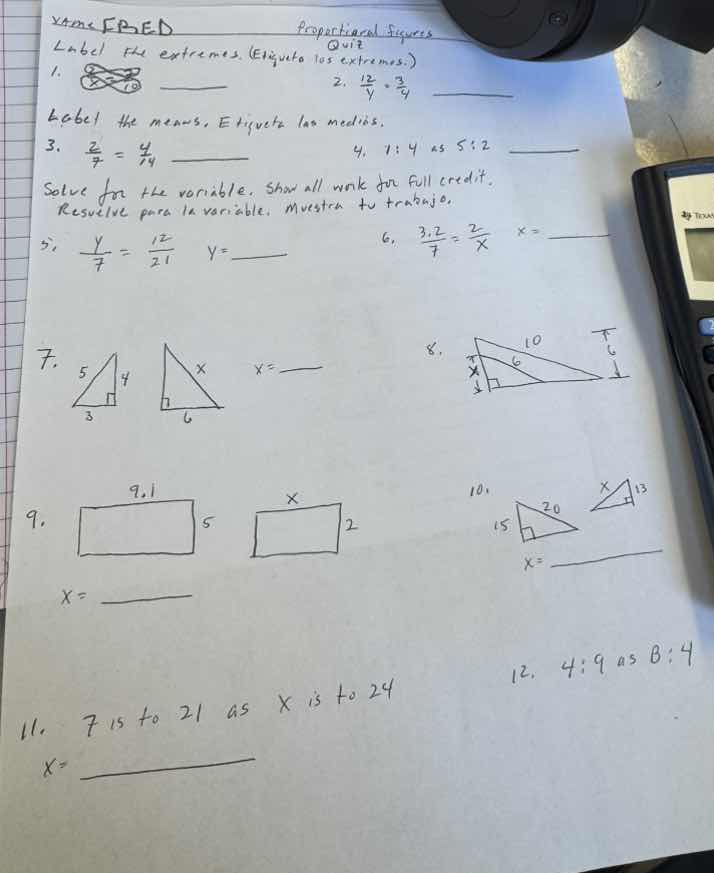 Name FRED Proportional figures
Quiz
Label the extremes. (Etiqueta los extremos.)
1. ____ 2. 12/y = 3/4 ____
Label the means. Etiqueta las medios.
3. 2/7 = 4/14 ____ 4. 1:4 as 5:2 ____
Solve for the variable. Show all work for full credit.
Resuelve para la variable. Muestra tu trabajo.
5. y/7 = 12/21 y= ____ 6. 3.2/7 = 2/x x= ____
7. 5 4 3 x 6 x= ____ 8. 10 6 x 6
9. 9.1 5 x 2 10. 15 20 x 13
x= ____ x= ____
11. 7 is to 21 as x is to 24 12. 4:9 as B:4
x= ____
TEXAS
2